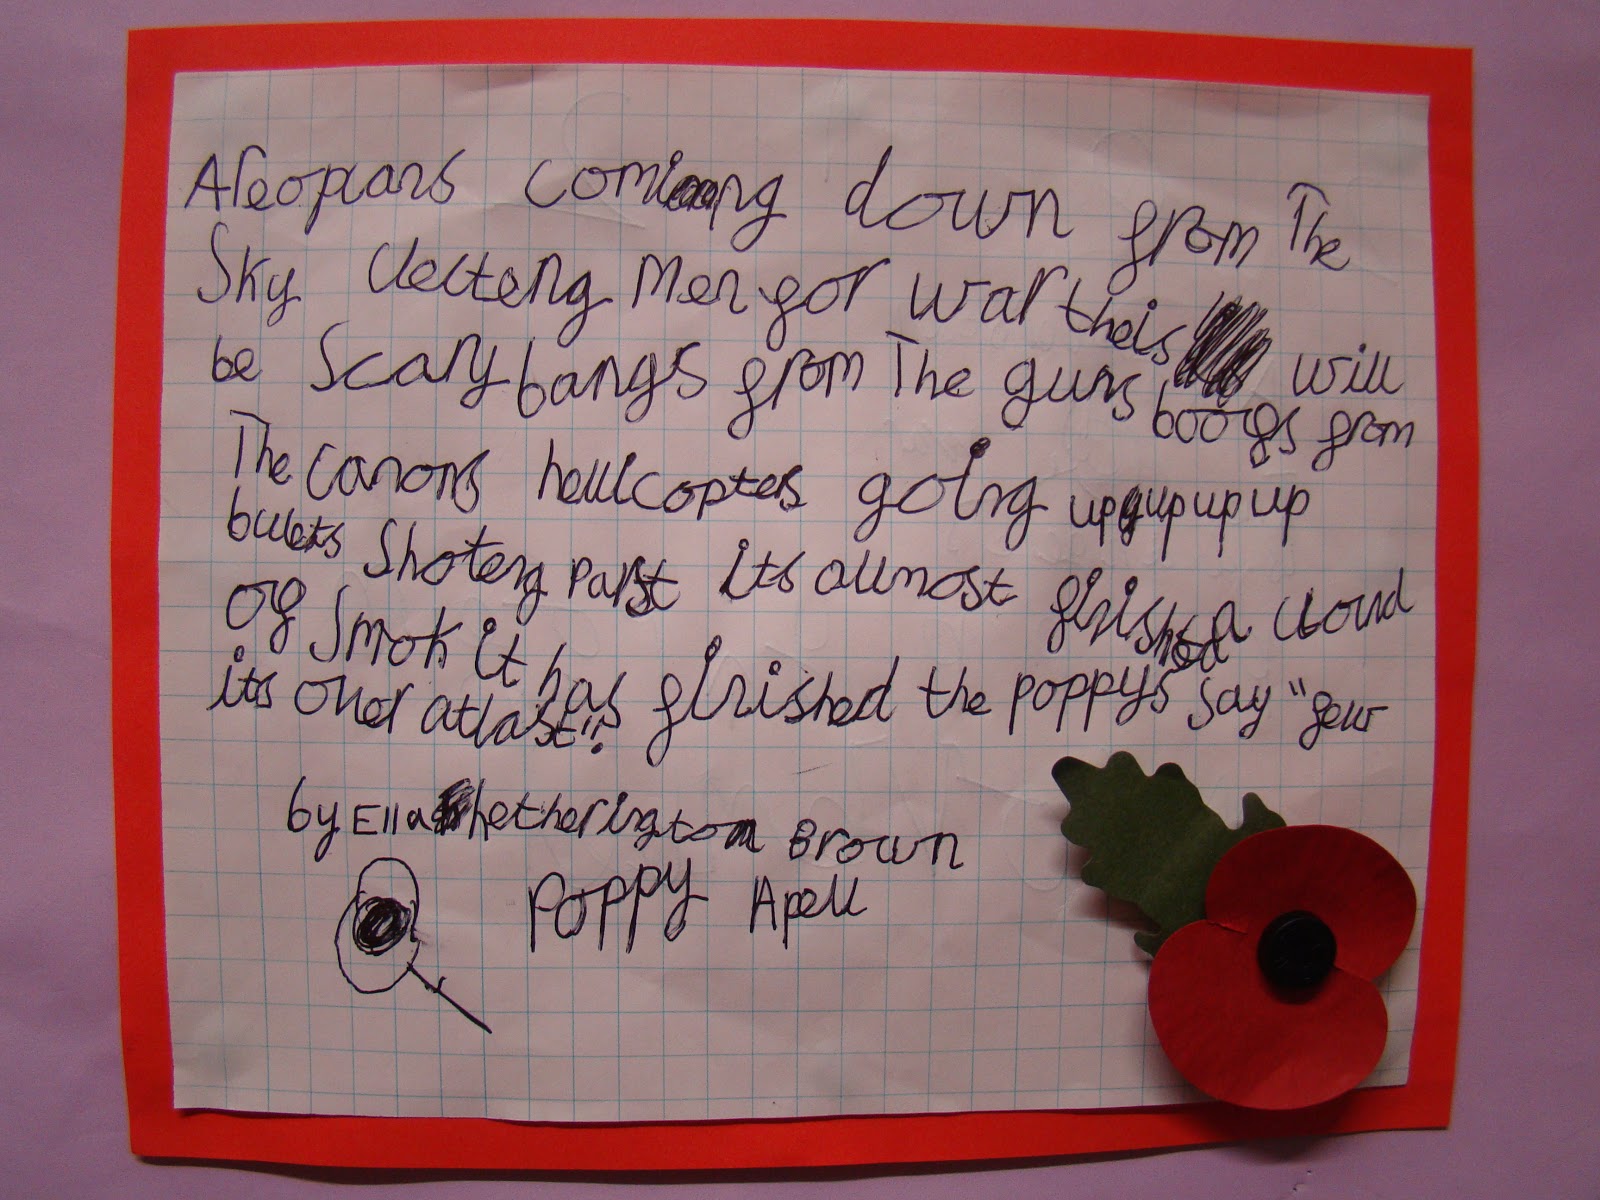 Areoplans coming down from The
Sky clecteng Men for war theis will
be Scary bangs from The guns booofs from
The canons hellicopters going up up up up
bullets Shoteng parst its allmost finished a cloud
of Smok it has finished the poppys say "feur
its over atlast"!
by Ella hetherington Brown
Poppy Apell